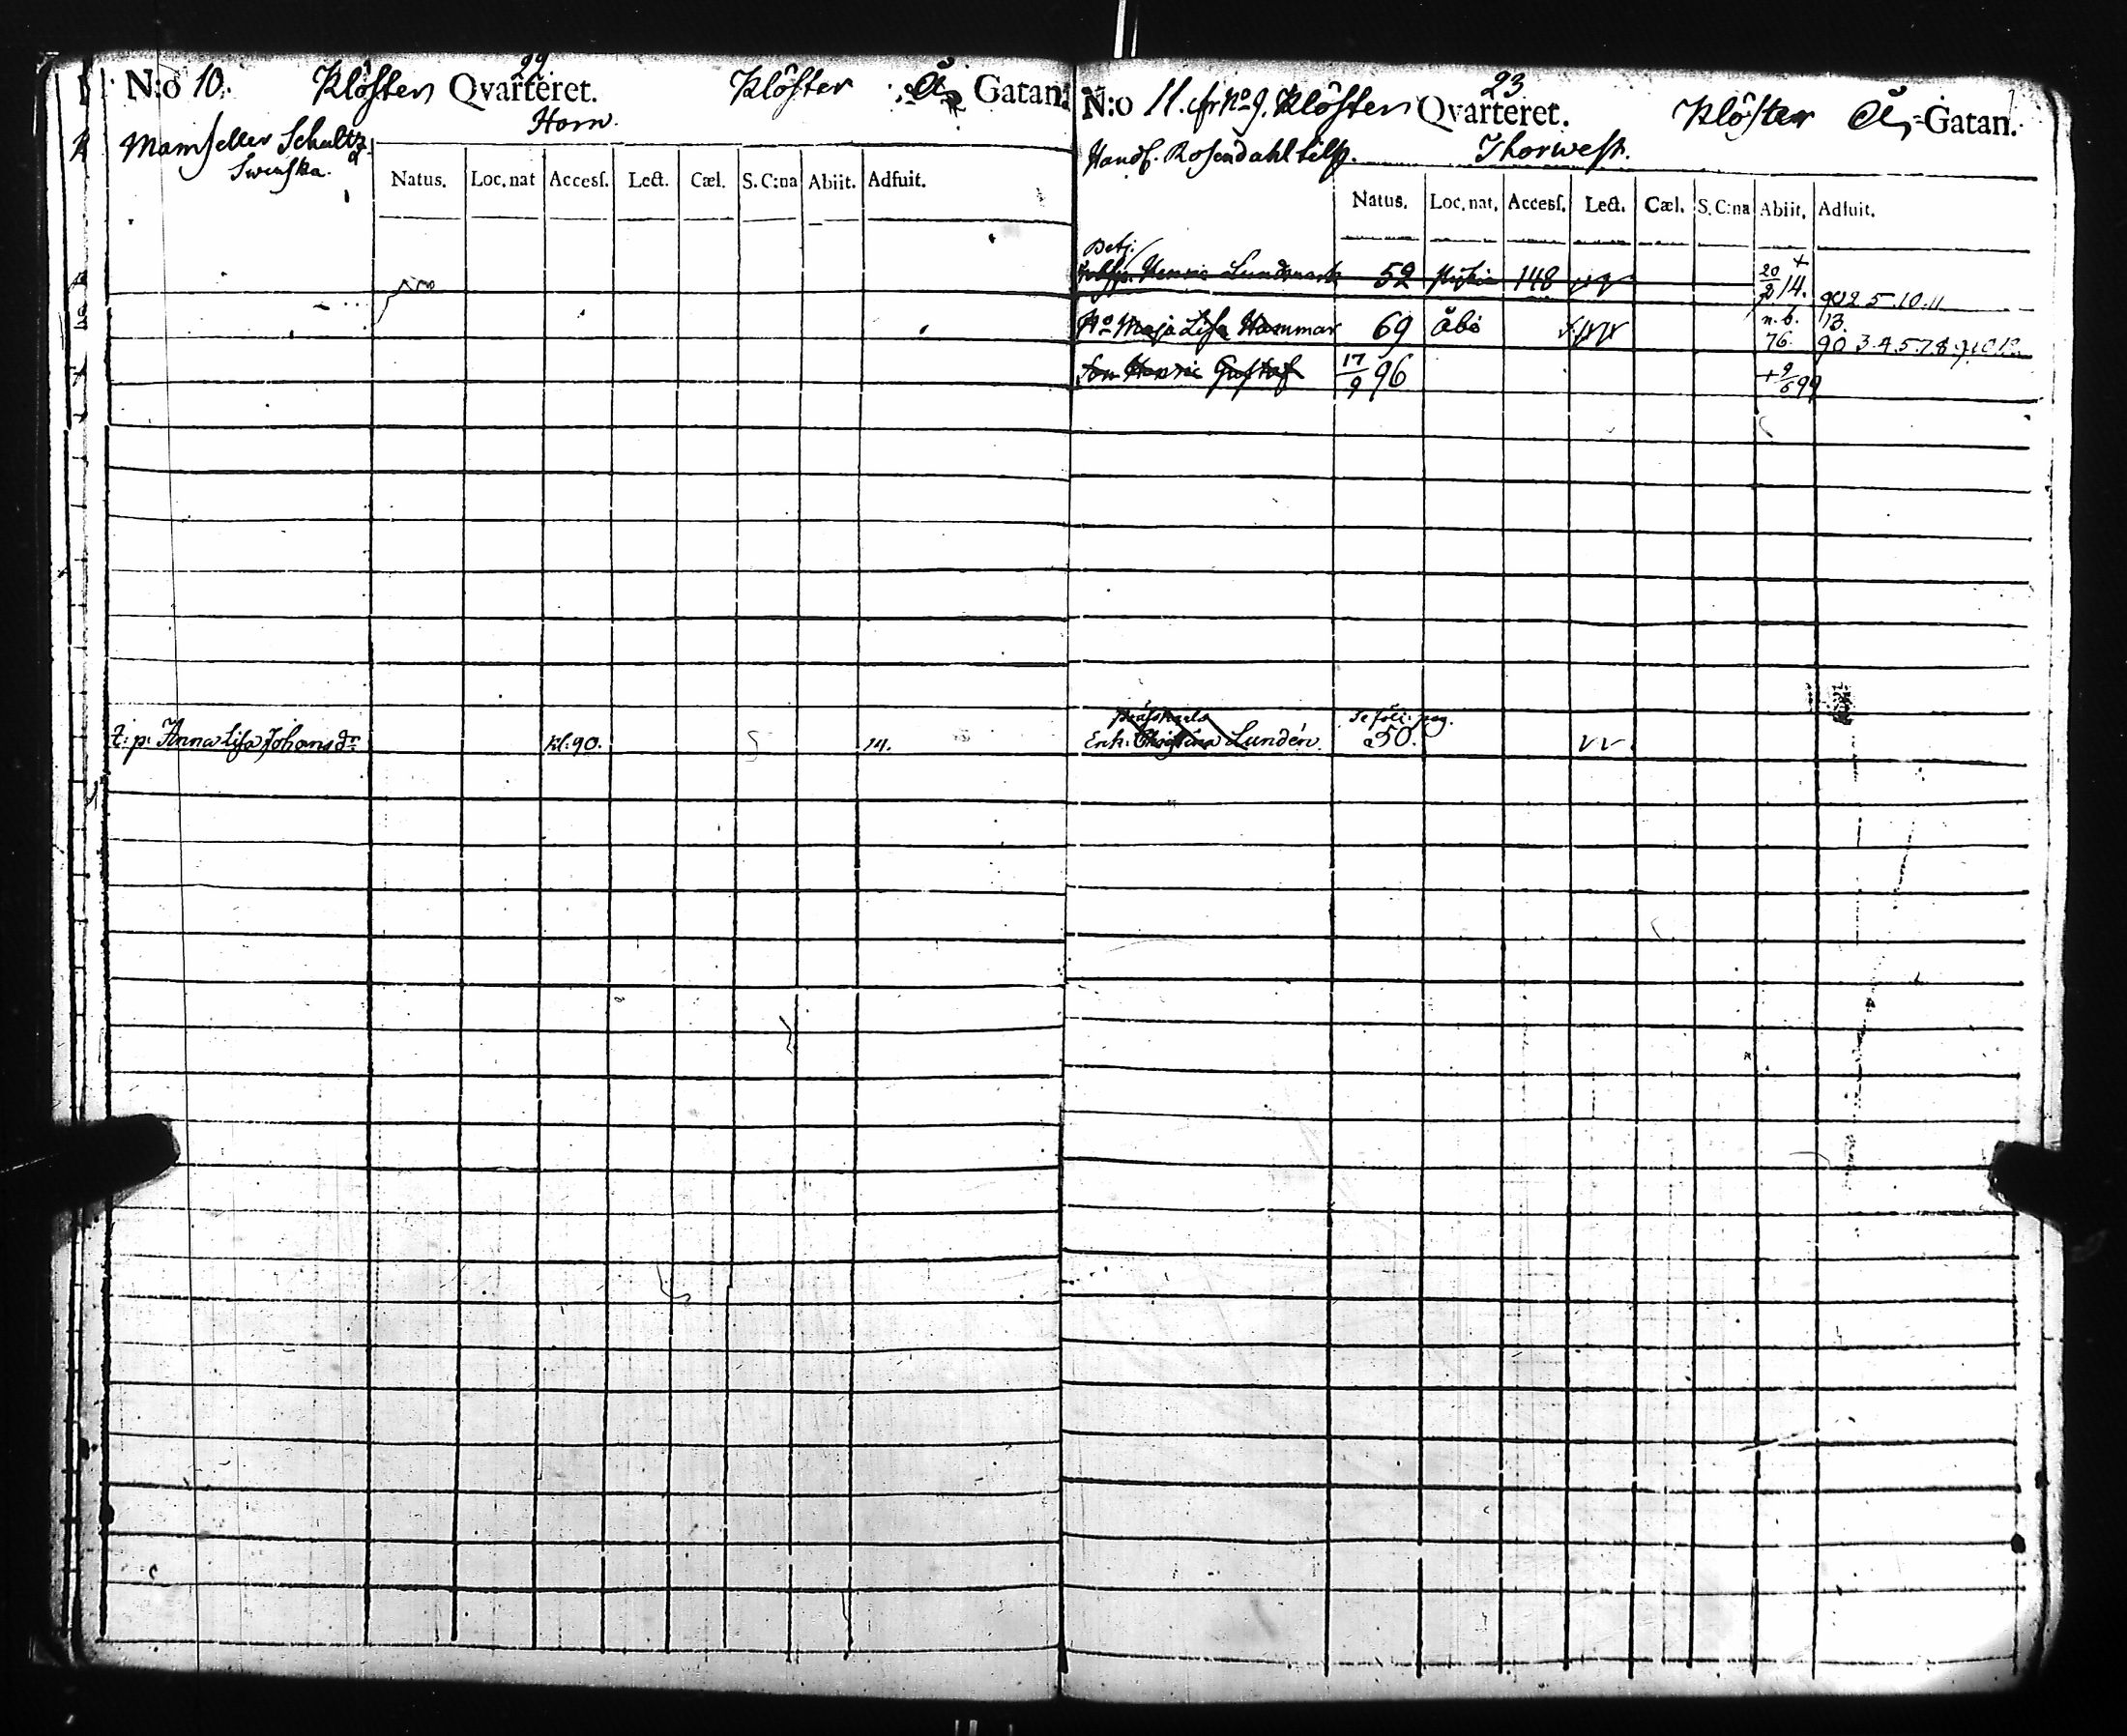 22
N:o 10. Klöster Qvarteret. Klöster Å Gatan.
Horn.
Mamseller Schultz
Swenska.
Natus. Loc. nat Accesſ. Lect. Cæl. S. C:na Abiit. Adfuit.
t: p: Anna Lisa Johansdr kl: 90. 14.
23
N:o 11. fr No 9. Klöster Qvarteret. Klöster Å Gatan.
Handl. Rosendahl Thorwest.
Natus. Loc. nat. Accesſ. Lect. Cæl. S. C:na Abiit. Adfuit.
Betj:
Henric Lundmark 52 148 20/2 14. + 902 5 10. 11
13.
Maja Lisa Hammar 69 Åbo n. b. 76. 90 3. 4. 5. 7. 8. 9. 10. 12.
Son Henric Gustaf 17/9 96 + 9/6 99
Se föli: pag.
Enk: Christina Lundén. 50.